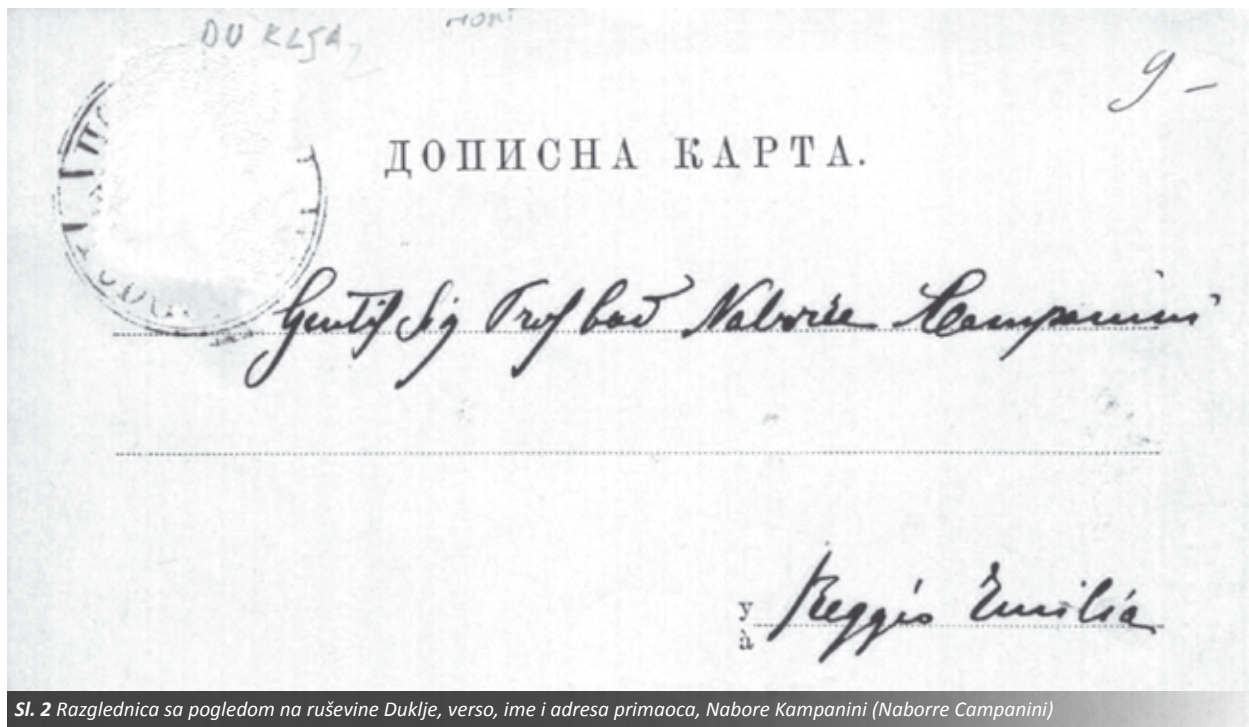 DUKLJA,
MONT
9 –
ДОПИСНА КАРТА.
Gentil Sig Prof Cav Naborre Campanini
у
à Reggio Emilia
Sl. 2 Razglednica sa pogledom na ruševine Duklje, verso, ime i adresa primaoca, Nabore Kampanini (Naborre Campanini)